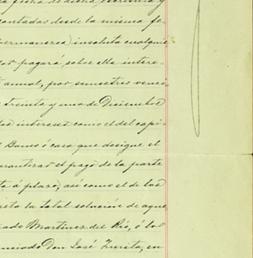 la fecha de dicha escritura y
contadas desde la misma fe
permanezca insoluta cualquie
pagará sobre ella inte
anual, por semestres venci
treinta y uno de Diciembre
los intereses como el del capi
Banco ó casa que designe el
garantizar el pago de la parte
ta á plazo, así como el de los
la total solucion de aque
Martinez del Rio, ó lo
Don José Zurita, en